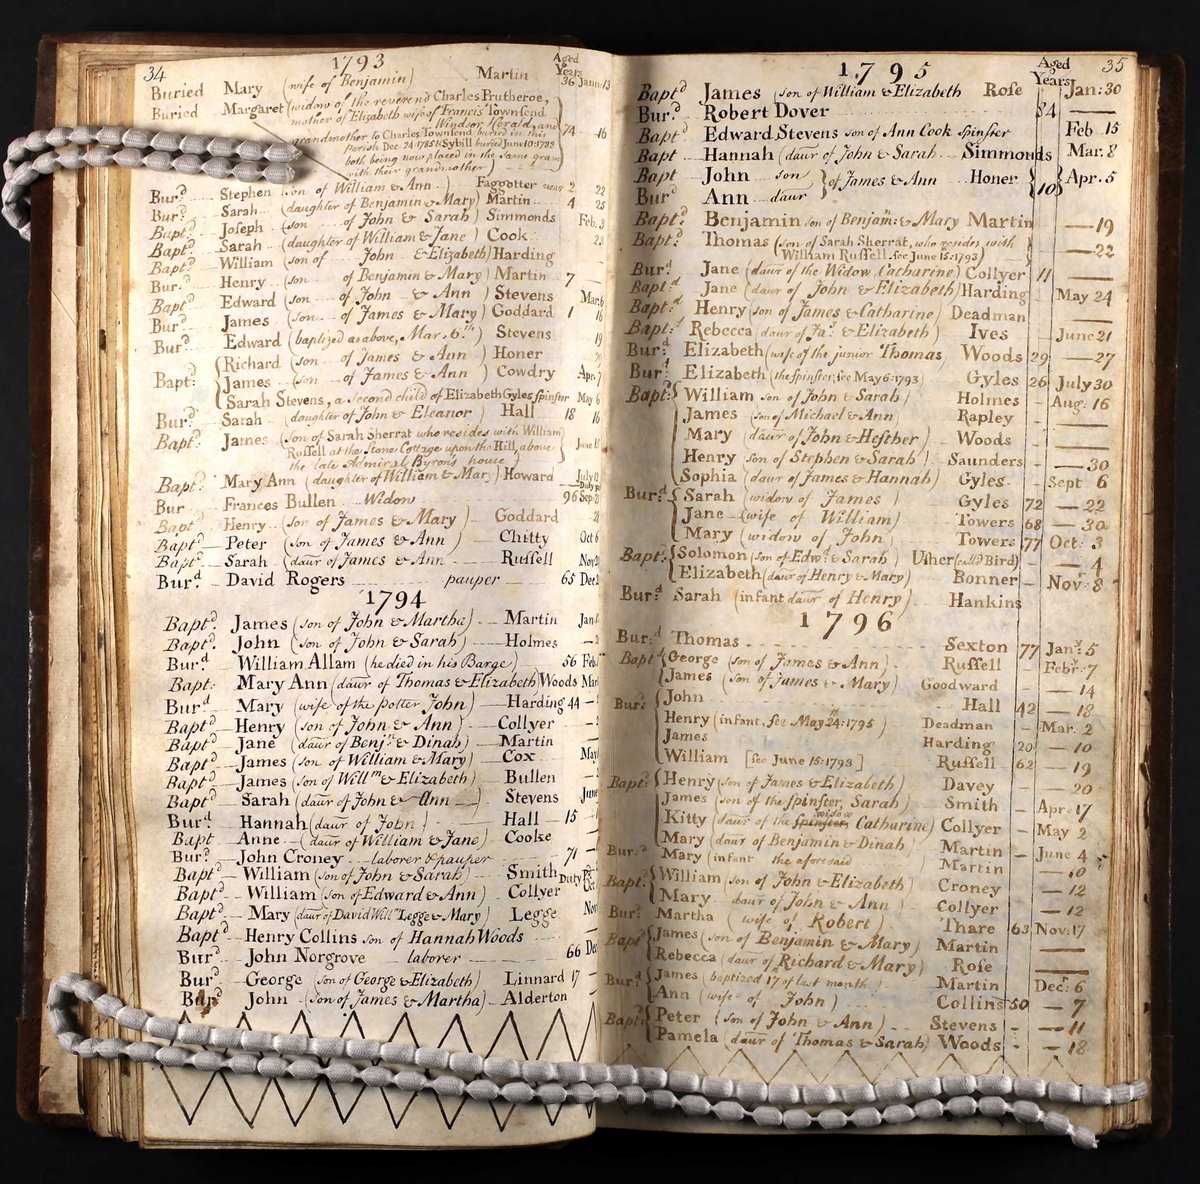 34
1793
Aged
Years
Buried Mary (wife of Benjamin) Martin 36 Janu: 13
Buried Margaret (widow of the reverend Charles Prutheroe,
mother of Elizabeth wife of Francis Townsend
Windsor Herald, and
grandmother to Charles Townsend buried in this
parish Dec. 24:1785 & Sybill buried June 10:1788
both being now placed in the same grave
with their grandmother) 74 16
Bur.d Stephen (son of William & Ann) Faggotter near 2 22
Bur.d Sarah (daughter of Benjamin & Mary) Martin 4 25
Bapt.d Joseph (son of John & Sarah) Simmonds Feb. 3
Bapt.d Sarah (daughter of William & Jane) Cook 23
Bapt.d William (son of John & Elizabeth) Harding
Bur.d Henry (son of Benjamin & Mary) Martin 7 —
Bapt.d Edward (son of John & Ann) Stevens Mar. 6
Bur.d James (son of James & Mary) Goddard 1 16
Bur.d Edward (baptized as above, Mar. 6.th) Stevens 19
Bapt: Richard (son of James & Ann) Honer
James (son of James & Ann) Cowdry Apr. 7
Sarah Stevens, a second child of Elizabeth Gyles spinster May 6
Bur.d Sarah (daughter of John & Eleanor) Hall 18 16
Bapt.d James (son of Sarah Sherrat who resides with William
Russell at the Stone Cottage upon the Hill, above
the late Admiral Byron's house) June 15
Bapt.d Mary Ann (daughter of William & Mary) Howard July 12
Bur Frances Bullen Widow 96 Sep: 2
Bapt.d Henry (son of James & Mary) Goddard
Bapt.d Peter (son of James & Ann) Chitty Oct 6
Bapt.d Sarah (daur of James & Ann Russell Nov 2
Bur.d David Rogers pauper 65 Dec 2
1794
Bapt.d James (son of John & Martha) Martin Jan
Bapt.d John (son of John & Sarah) Holmes
Bur.d William Allam (he died in his Barge) 56 Feb
Bapt: Mary Ann (daur of Thomas & Elizabeth) Woods Mar
Bur.d Mary (wife of the potter John) Harding 44
Bapt.d Henry (son of John & Ann) Collyer
Bapt.d Jane (daur of Benj.n & Dinah) Martin
Bapt.d James (son of William & Mary) Cox May
Bapt.d James (son of Will.m & Elizabeth) Bullen
Bapt.d Sarah (daur of John & Ann) Stevens June
Bur.d Hannah (daur of John) Hall 15
Bapt Anne (daur of William & Jane) Cooke
Bur.d John Croney laborer & pauper 71
Bapt.d William (son of John & Sarah) Smith
Bapt.d William (son of Edward & Ann) Collyer Oct
Bapt.d Mary (daur of David Will.m Legge & Mary) Legge Nov
Bapt.d Henry Collins son of Hannah Woods
Bur.d John Norgrove laborer 66 Dec
Bur.d George (son of George & Elizabeth) Linnard 17
Bur.d John (son of James & Martha) Alderton
1795
Aged
Years
35
Bapt.d James (son of William & Elizabeth Rose Jan: 30
Bur.d Robert Dover 84 —
Bapt.d Edward Stevens son of Ann Cook spinster Feb 15
Bapt Hannah (daur of John & Sarah Simmonds Mar. 8
Bapt John son of James & Ann Honer Apr. 5
Bur.d Ann daur 10
Bapt.d Benjamin son of Benjam: & Mary Martin —19
Bapt.d Thomas (son of Sarah Sherrat, who resides with
William Russell. see June 15:1793) —22
Bur.d Jane (daur of the Widow, Catharine) Collyer 11 —
Bapt.d Jane (daur of John & Elizabeth) Harding May 24
Bapt.d Henry (son of James & Catharine) Deadman —
Bapt.d Rebecca (daur of Ja.s & Elizabeth) Ives June 21
Bur.d Elizabeth (wife of the junior Thomas) Woods 29 —27
Bur.d Elizabeth (the spinster, see May 6:1793) Gyles 26 July 30
Bapt.d William son of John & Sarah) Holmes Aug: 16
James (son of Michael & Ann Rapley —
Mary (daur of John & Hesther) Woods —
Henry (son of Stephen & Sarah) Saunders —30
Sophia (daur of James & Hannah) Gyles Sept 6
Bur.d Sarah (widow of James) Gyles 72 —22
Jane (wife of William) Towers 68 —30
Mary (widow of John) Towers 77 Oct: 3
Bapt.d Solomon (son of Edw.d & Sarah) Usher (call'd Bird) —4
Elizabeth (daur of Henry & Mary) Bonner Nov.r 8
Bur.d Sarah (infant daur of Henry) Hankins
1796
Bur.d Thomas Sexton 77 Jan.y 5
Bapt.d George (son of James & Ann) Russell Feb.r 7
James (son of James & Mary) Goodward —14
Bur.d John Hall 42 —18
Henry (infant, see May 24:1795) Deadman Mar. 2
James Harding 20 —10
William [see June 15:1793] Russell 62 —19
Bapt.d Henry (son of James & Elizabeth) Davey —20
James (son of the spinster, Sarah) Smith Apr. 17
widow
Kitty (daur of the spinster, Catharine) Collyer May 2
Mary (daur of Benjamin & Dinah) Martin June 4
Bur.d Mary (infant the aforesaid Martin —10
Bapt.d William (son of John & Elizabeth) Croney —12
Mary daur of John & Ann) Collyer —12
Bur.d Martha (wife of Robert) Thare 63 Nov: 17
Bapt.d James (son of Benjamin & Mary) Martin
Rebecca (daur of Richard & Mary) Rose —
Bur.d James (baptized 17 of last month) Martin Dec.r 6
Ann (wife of John) Collins 50 —7
Bapt.d Peter (son of John & Ann) Stevens —11
Pamela (daur of Thomas & Sarah) Woods —18